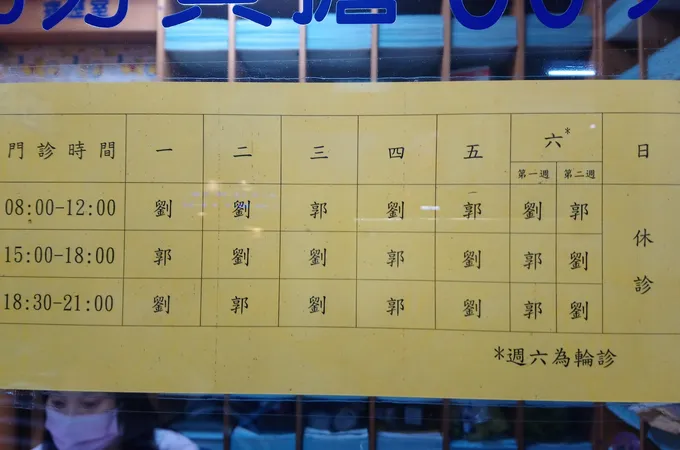 門診時間 一 二 三 四 五 六* 日
第一週 第二週
08:00-12:00 劉 劉 郭 劉 郭 劉 郭 休診
15:00-18:00 郭 劉 劉 郭 劉 郭 劉
18:30-21:00 劉 郭 劉 郭 劉 郭 劉
*週六為輪診